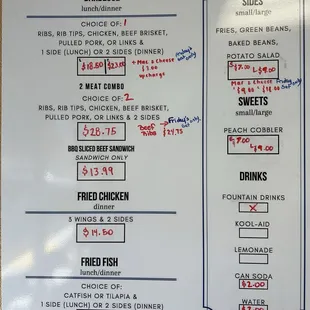 lunch/dinner
CHOICE OF: 1
RIBS, RIB TIPS, CHICKEN, BEEF BRISKET,
PULLED PORK, OR LINKS &
1 SIDE (LUNCH) OR 2 SIDES (DINNER)
$18.50 $23.00 + Mac & Cheese
$2.00
upcharge
Friday's
2 MEAT COMBO
CHOICE OF: 2
RIBS, RIB TIPS, CHICKEN, BEEF BRISKET,
PULLED PORK, OR LINKS & 2 SIDES
$28.75 Beef
Ribs $24.75
BBQ SLICED BEEF SANDWICH
SANDWICH ONLY
$13.99
FRIED CHICKEN
dinner
3 WINGS & 2 SIDES
$14.50
FRIED FISH
lunch/dinner
CHOICE OF:
CATFISH OR TILAPIA &
1 SIDE (LUNCH) OR 2 SIDES (DINNER)
SIDES
small/large
FRIES, GREEN BEANS,
BAKED BEANS,
POTATO SALAD
$7.00 L $9.00
Mac & Cheese Friday
SWEETS
small/large
PEACH COBBLER
$7.00
L $9.00
DRINKS
FOUNTAIN DRINKS
X
KOOL-AID
LEMONADE
CAN SODA
$2.00
WATER